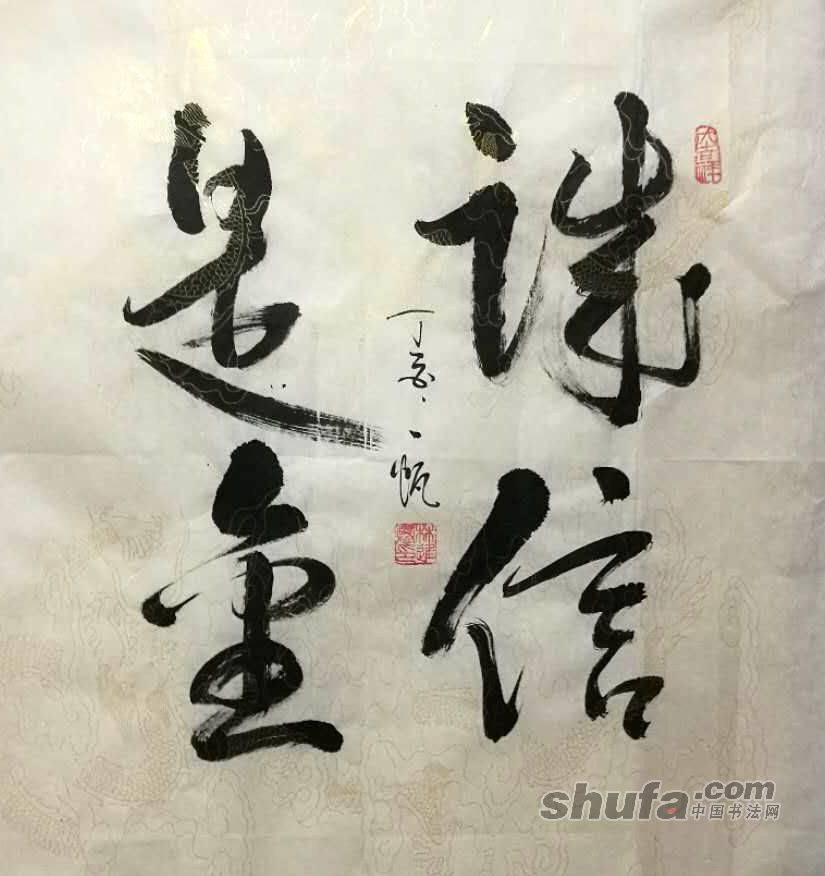 诚信
是金
丁酉、一帆
shufa.com
中国书法网